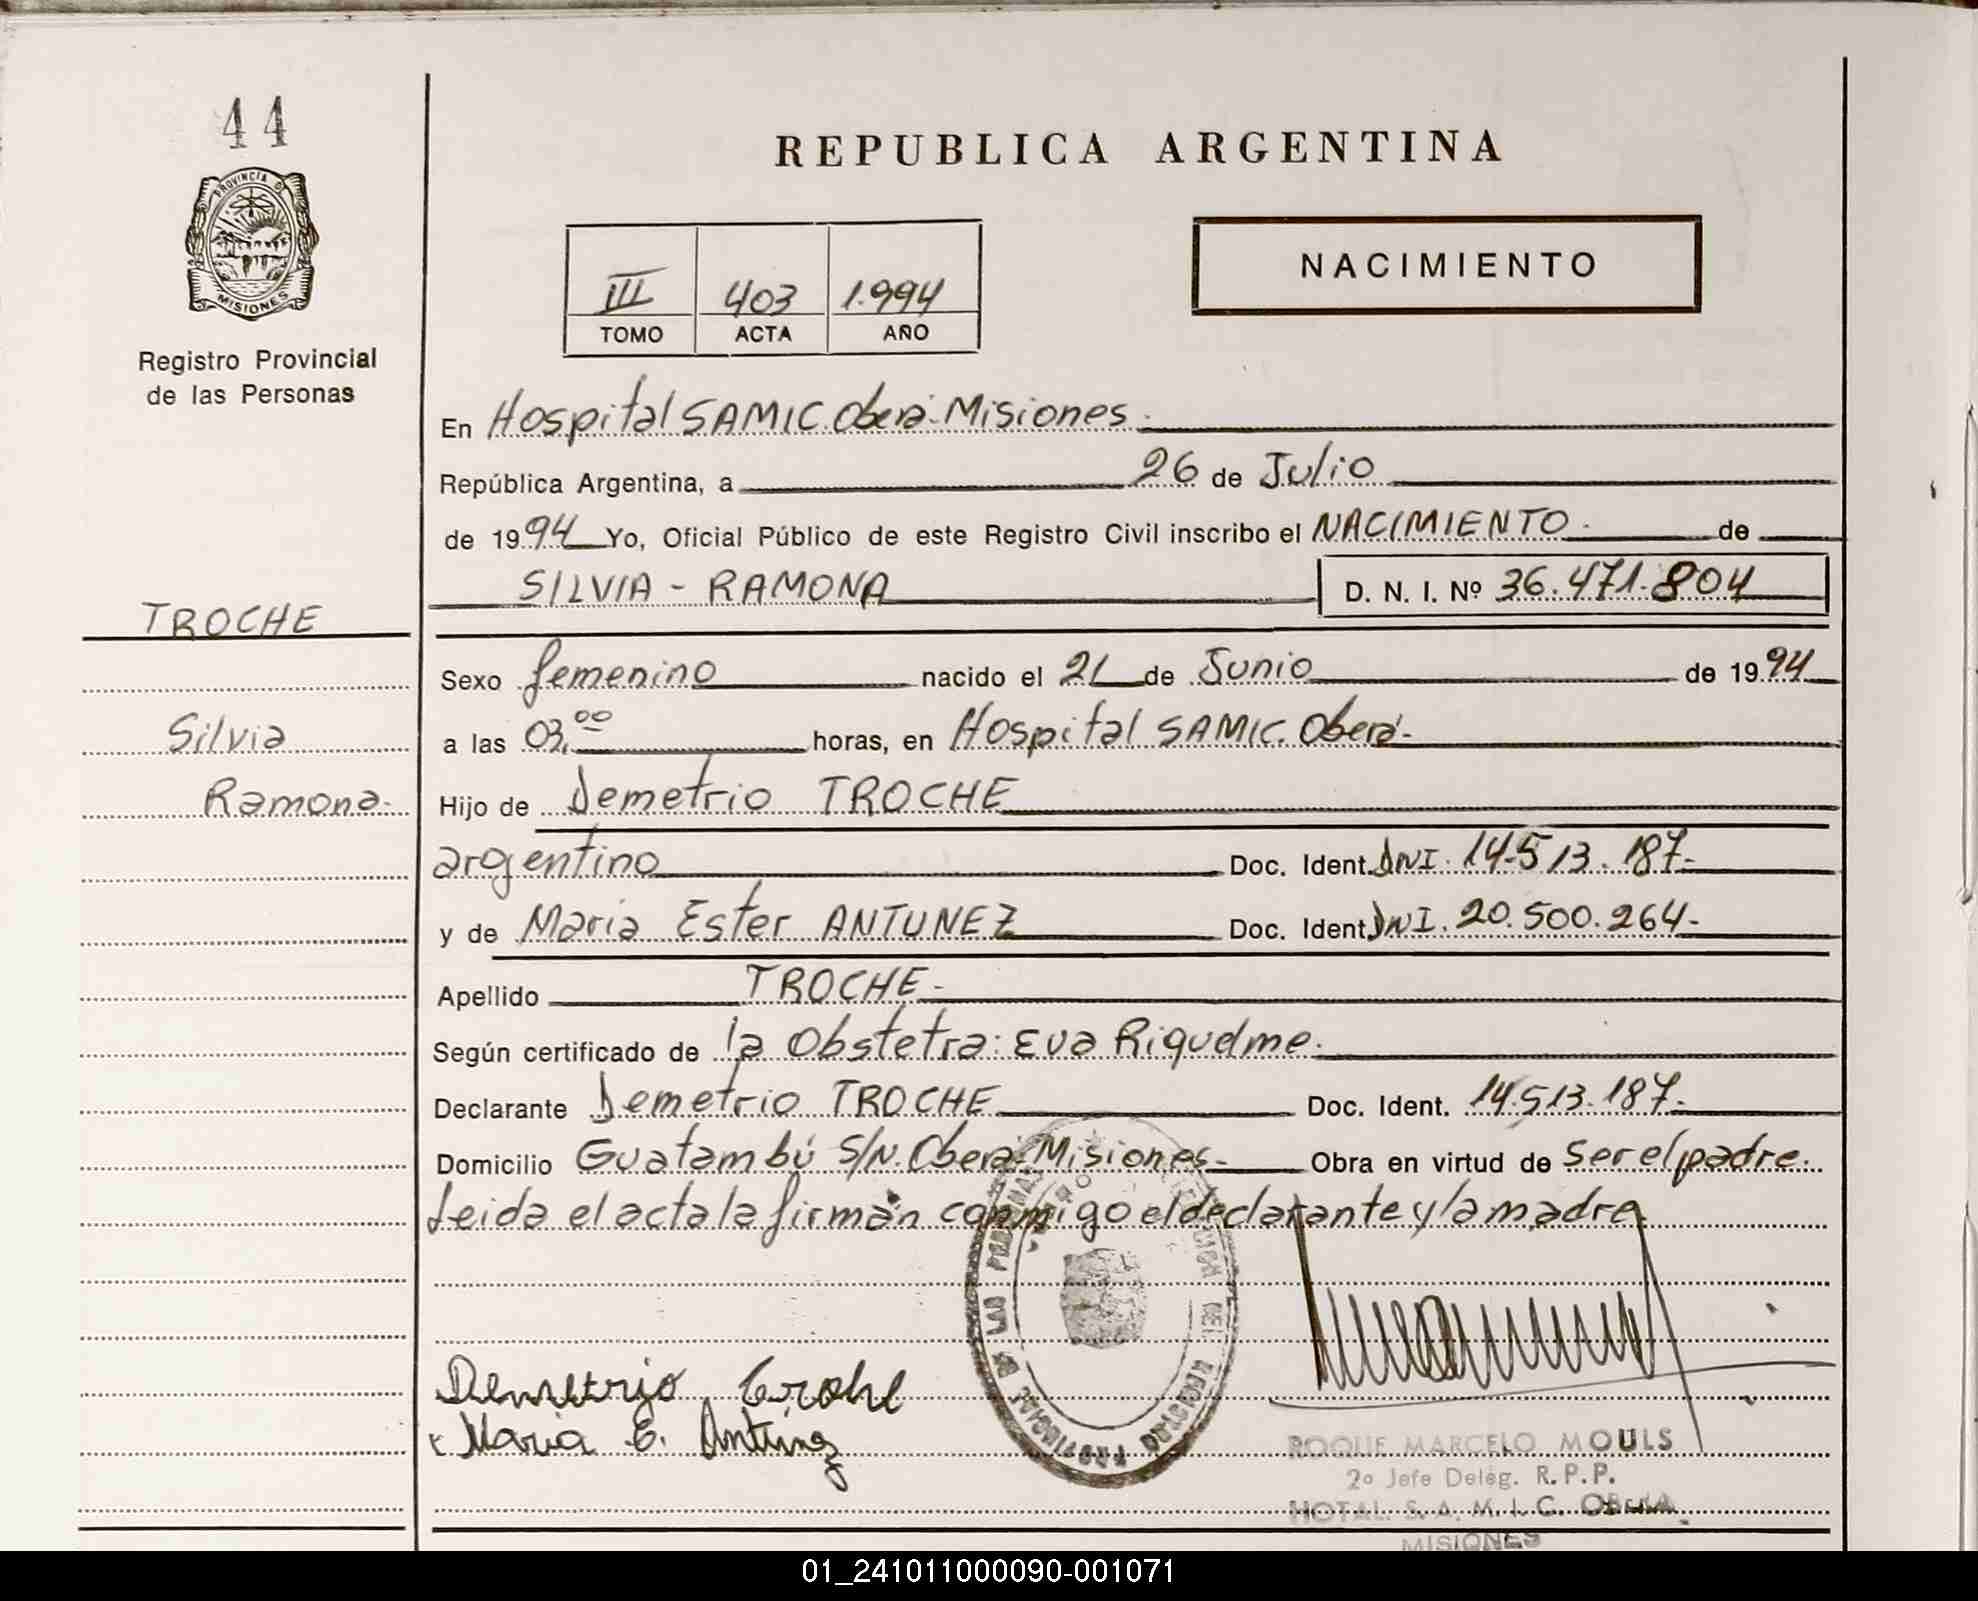 44
PROVINCIA DE
MISIONES
Registro Provincial
de las Personas
TROCHE
Silvia
Ramona.
REPUBLICA ARGENTINA
III 403 1.994
TOMO ACTA AÑO
NACIMIENTO
En Hospital SAMIC. Oberá-Misiones.
República Argentina, a 26 de Julio
de 1994 Yo, Oficial Público de este Registro Civil inscribo el NACIMIENTO. de
SILVIA - RAMONA D. N. I. Nº 36.471.804
Sexo femenino nacido el 21 de Junio de 1994
a las 03,00 horas, en Hospital SAMIC. Oberá-
Hijo de Demetrio TROCHE
argentino Doc. Ident. DNI. 14.513.187-
y de Maria Ester ANTUNEZ Doc. Ident. DNI. 20.500.264-
Apellido TROCHE-
Según certificado de la Obstetra: Eva Riquelme.
Declarante Demetrio TROCHE Doc. Ident. 14.513.187-
Domicilio Guatambú S/N. Oberá-Misiones- Obra en virtud de ser el padre.
Leida el acta la firman conmigo el declarante y la madre
PROVINCIAL DE LAS PERSONAS
REGISTRO
Demetrio Troche
Maria E. Antunez
ROQUE MARCELO MOULS
2º Jefe Deleg. R.P.P.
HOTAL. S. A. M. I. C. OBERA
MISIONES
01_241011000090-001071